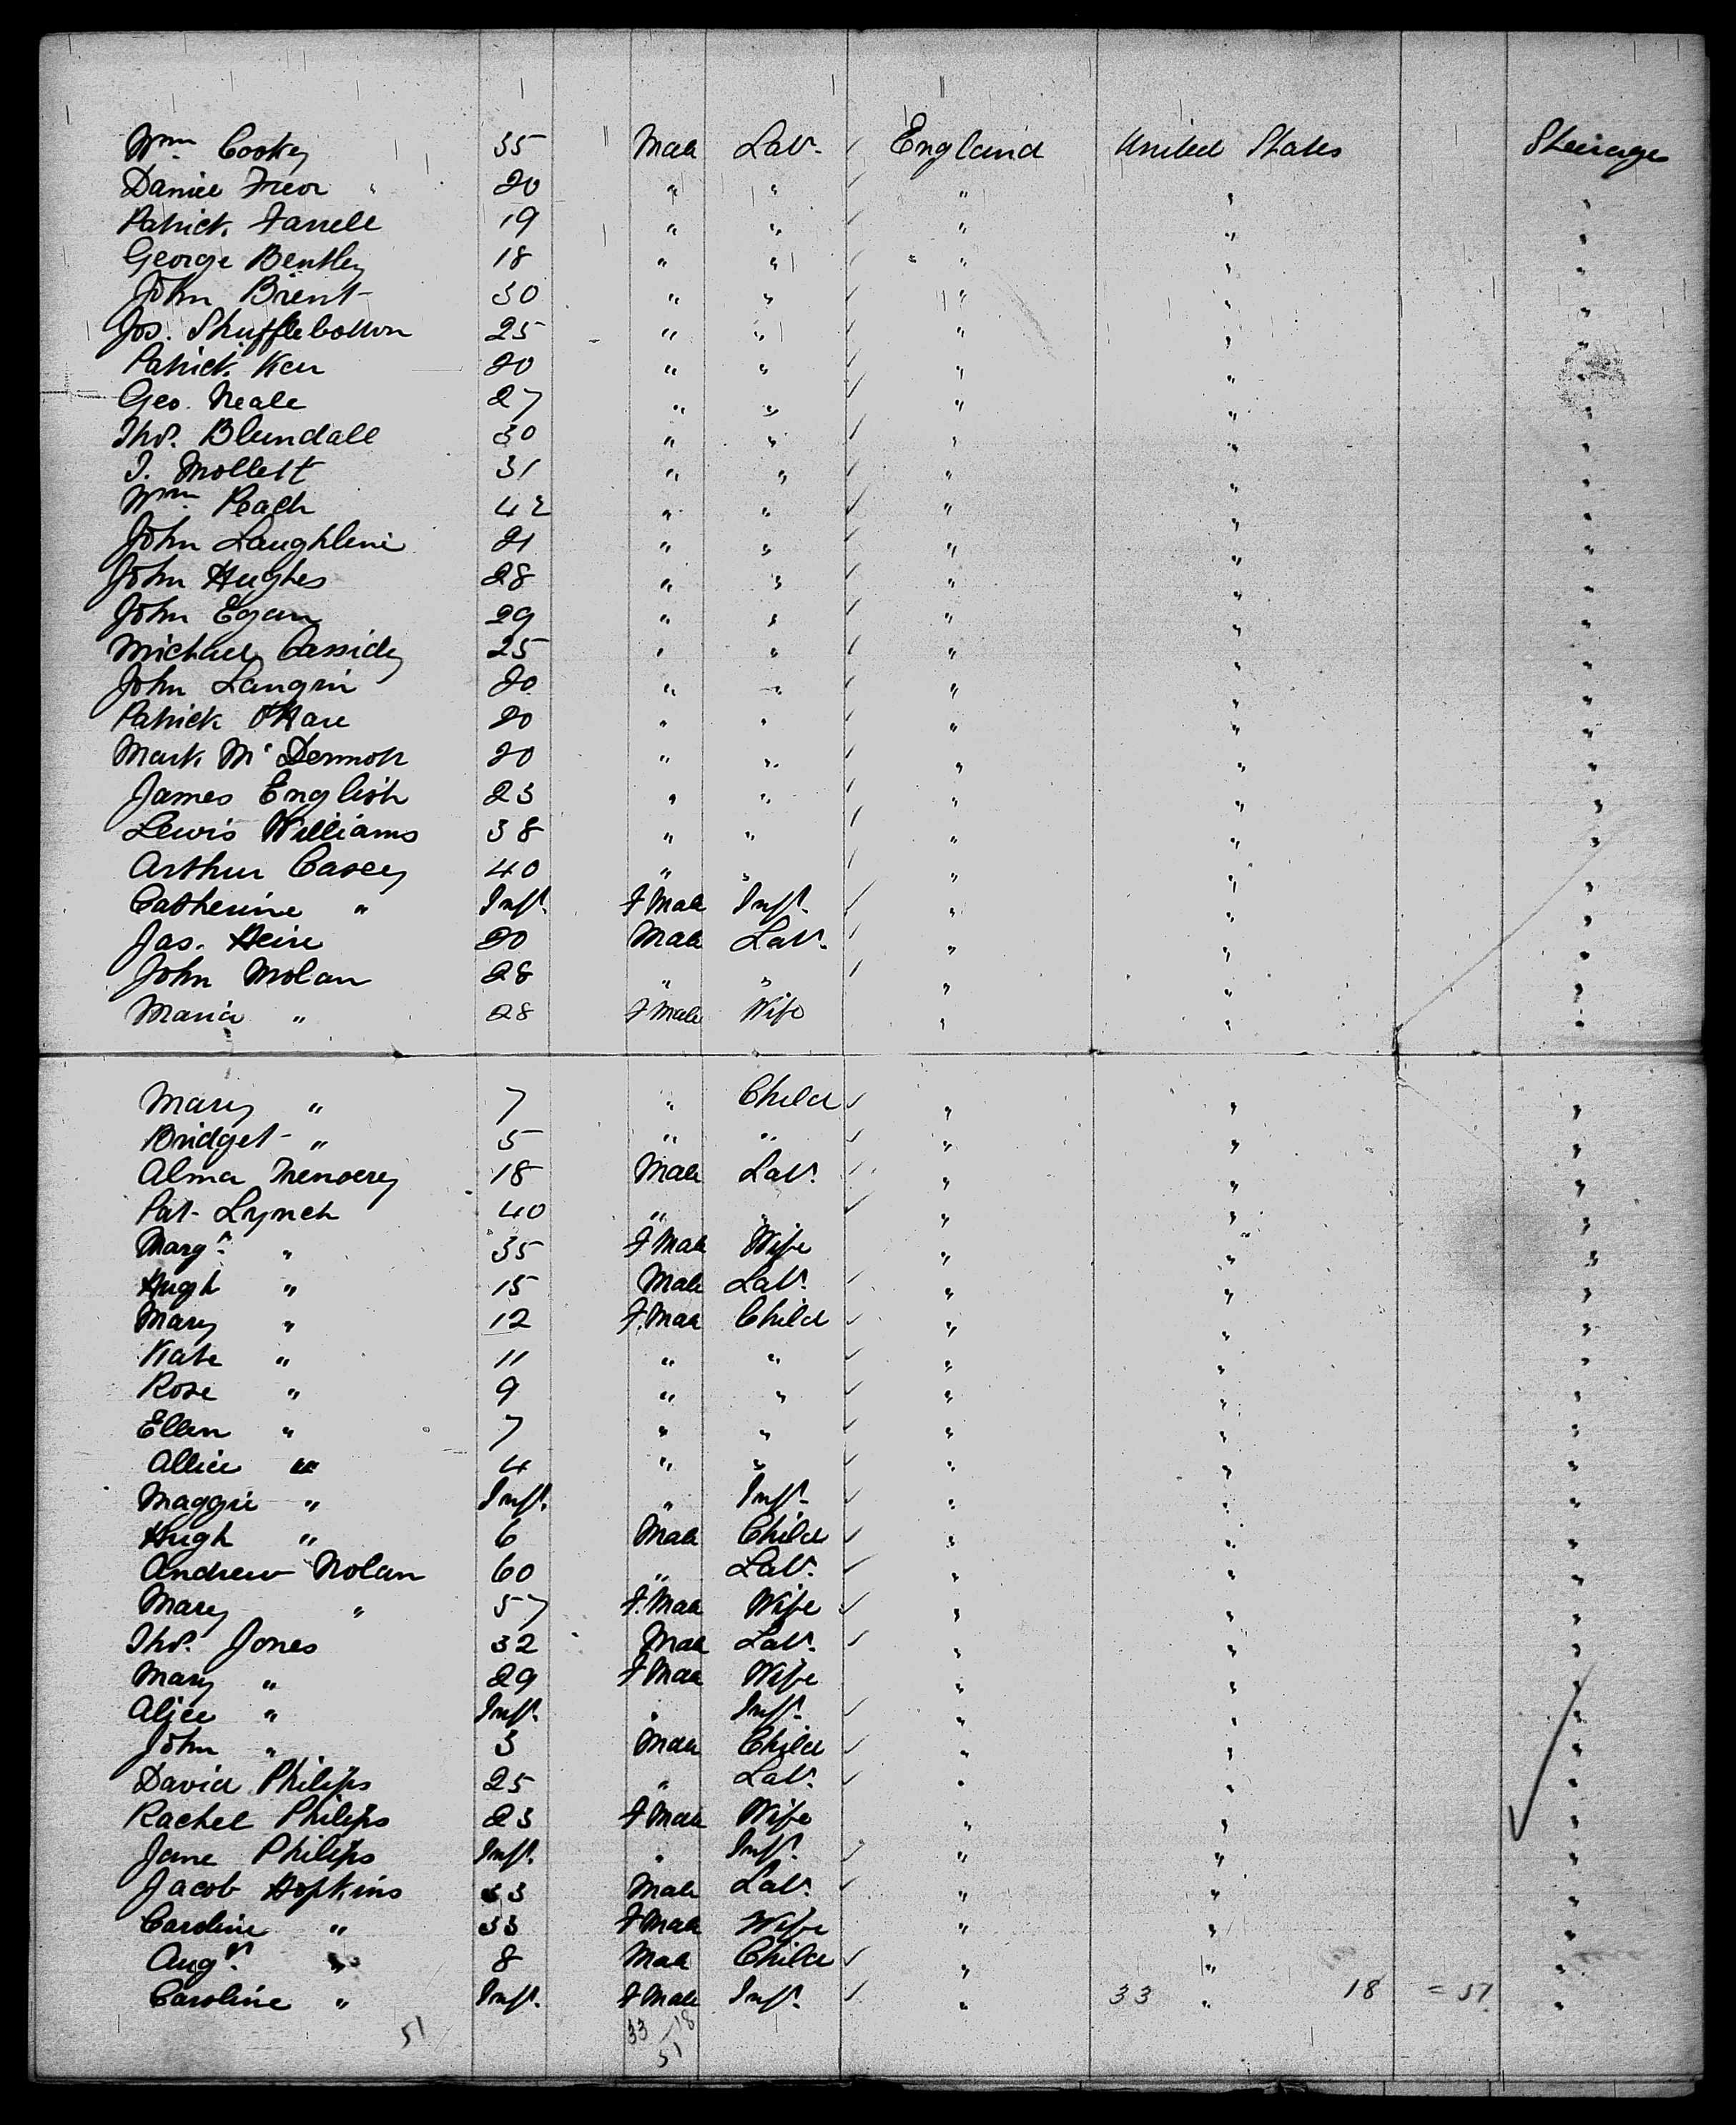 Wm. Cookey 35 Male Labr. ✓ England United States Steerage
Daniel Trevor 20 " " ✓ " " "
Patrick Farrell 19 " " ✓ " " "
George Bentley 18 " " ✓ " " "
John Brient 30 " " ✓ " " "
Jos. Shufflebottom 25 " " ✓ " " "
Patrick Kerr 20 " " ✓ " " "
Geo. Neale 27 " " ✓ " " "
Thos. Blundall 30 " " ✓ " " "
J. Mollett 31 " " ✓ " " "
Wm. Peach 42 " " ✓ " " "
John Laughlin 21 " " ✓ " " "
John Hughes 28 " " ✓ " " "
John Egan 29 " " ✓ " " "
Michael Cassidy 25 " " ✓ " " "
John Langrin 20 " " ✓ " " "
Patrick O'Hare 20 " " ✓ " " "
Mark McDermott 20 " " ✓ " " "
James English 23 " " ✓ " " "
Lewis Williams 38 " " ✓ " " "
Arthur Casey 40 " " ✓ " " "
Catherine " Inft. F Male Inft. ✓ " " "
Jas. Heire 20 Male Labr. ✓ " " "
John Nolan 28 " " ✓ " " "
Maria " 28 F Male Wife " " "
Mary " 7 " Child ✓ " " "
Bridget " 5 " " ✓ " " "
Alma 18 Male Labr. ✓ " " "
Pat Lynch 40 " " ✓ " " "
Margt. " 35 F Male Wife " " "
Hugh " 15 Male Labr. ✓ " " "
Mary " 12 F. Male Child ✓ " " "
Kate " 11 " " ✓ " " "
Rose " 9 " " ✓ " " "
Ellen " 7 " " ✓ " " "
Allice " 4 " " ✓ " " "
Maggie " Inft. " Inft. ✓ " " "
Hugh " 6 Male Child ✓ " " "
Andrew Nolan 60 " Labr. ✓ " " "
Mary " 57 F. Male Wife ✓ " " "
Thos. Jones 32 Male Labr. ✓ " " "
Mary " 29 F Male Wife " " "
Alice " Inft. " Inft. ✓ " " "
John " 3 Male Child ✓ " " "
David Philips 25 " Labr. ✓ " " "
Rachel Philips 23 F Male Wife " " "
Jane Philips Inft. " Inft. ✓ " " "
Jacob Hopkins 33 Male Labr. ✓ " " "
Caroline " 33 F Male Wife " " "
Augt. " 8 Male Child ✓ " " "
Caroline " Inft. F Male Inft. ✓ " 33 " 18 = 51 "
51 33 18
51